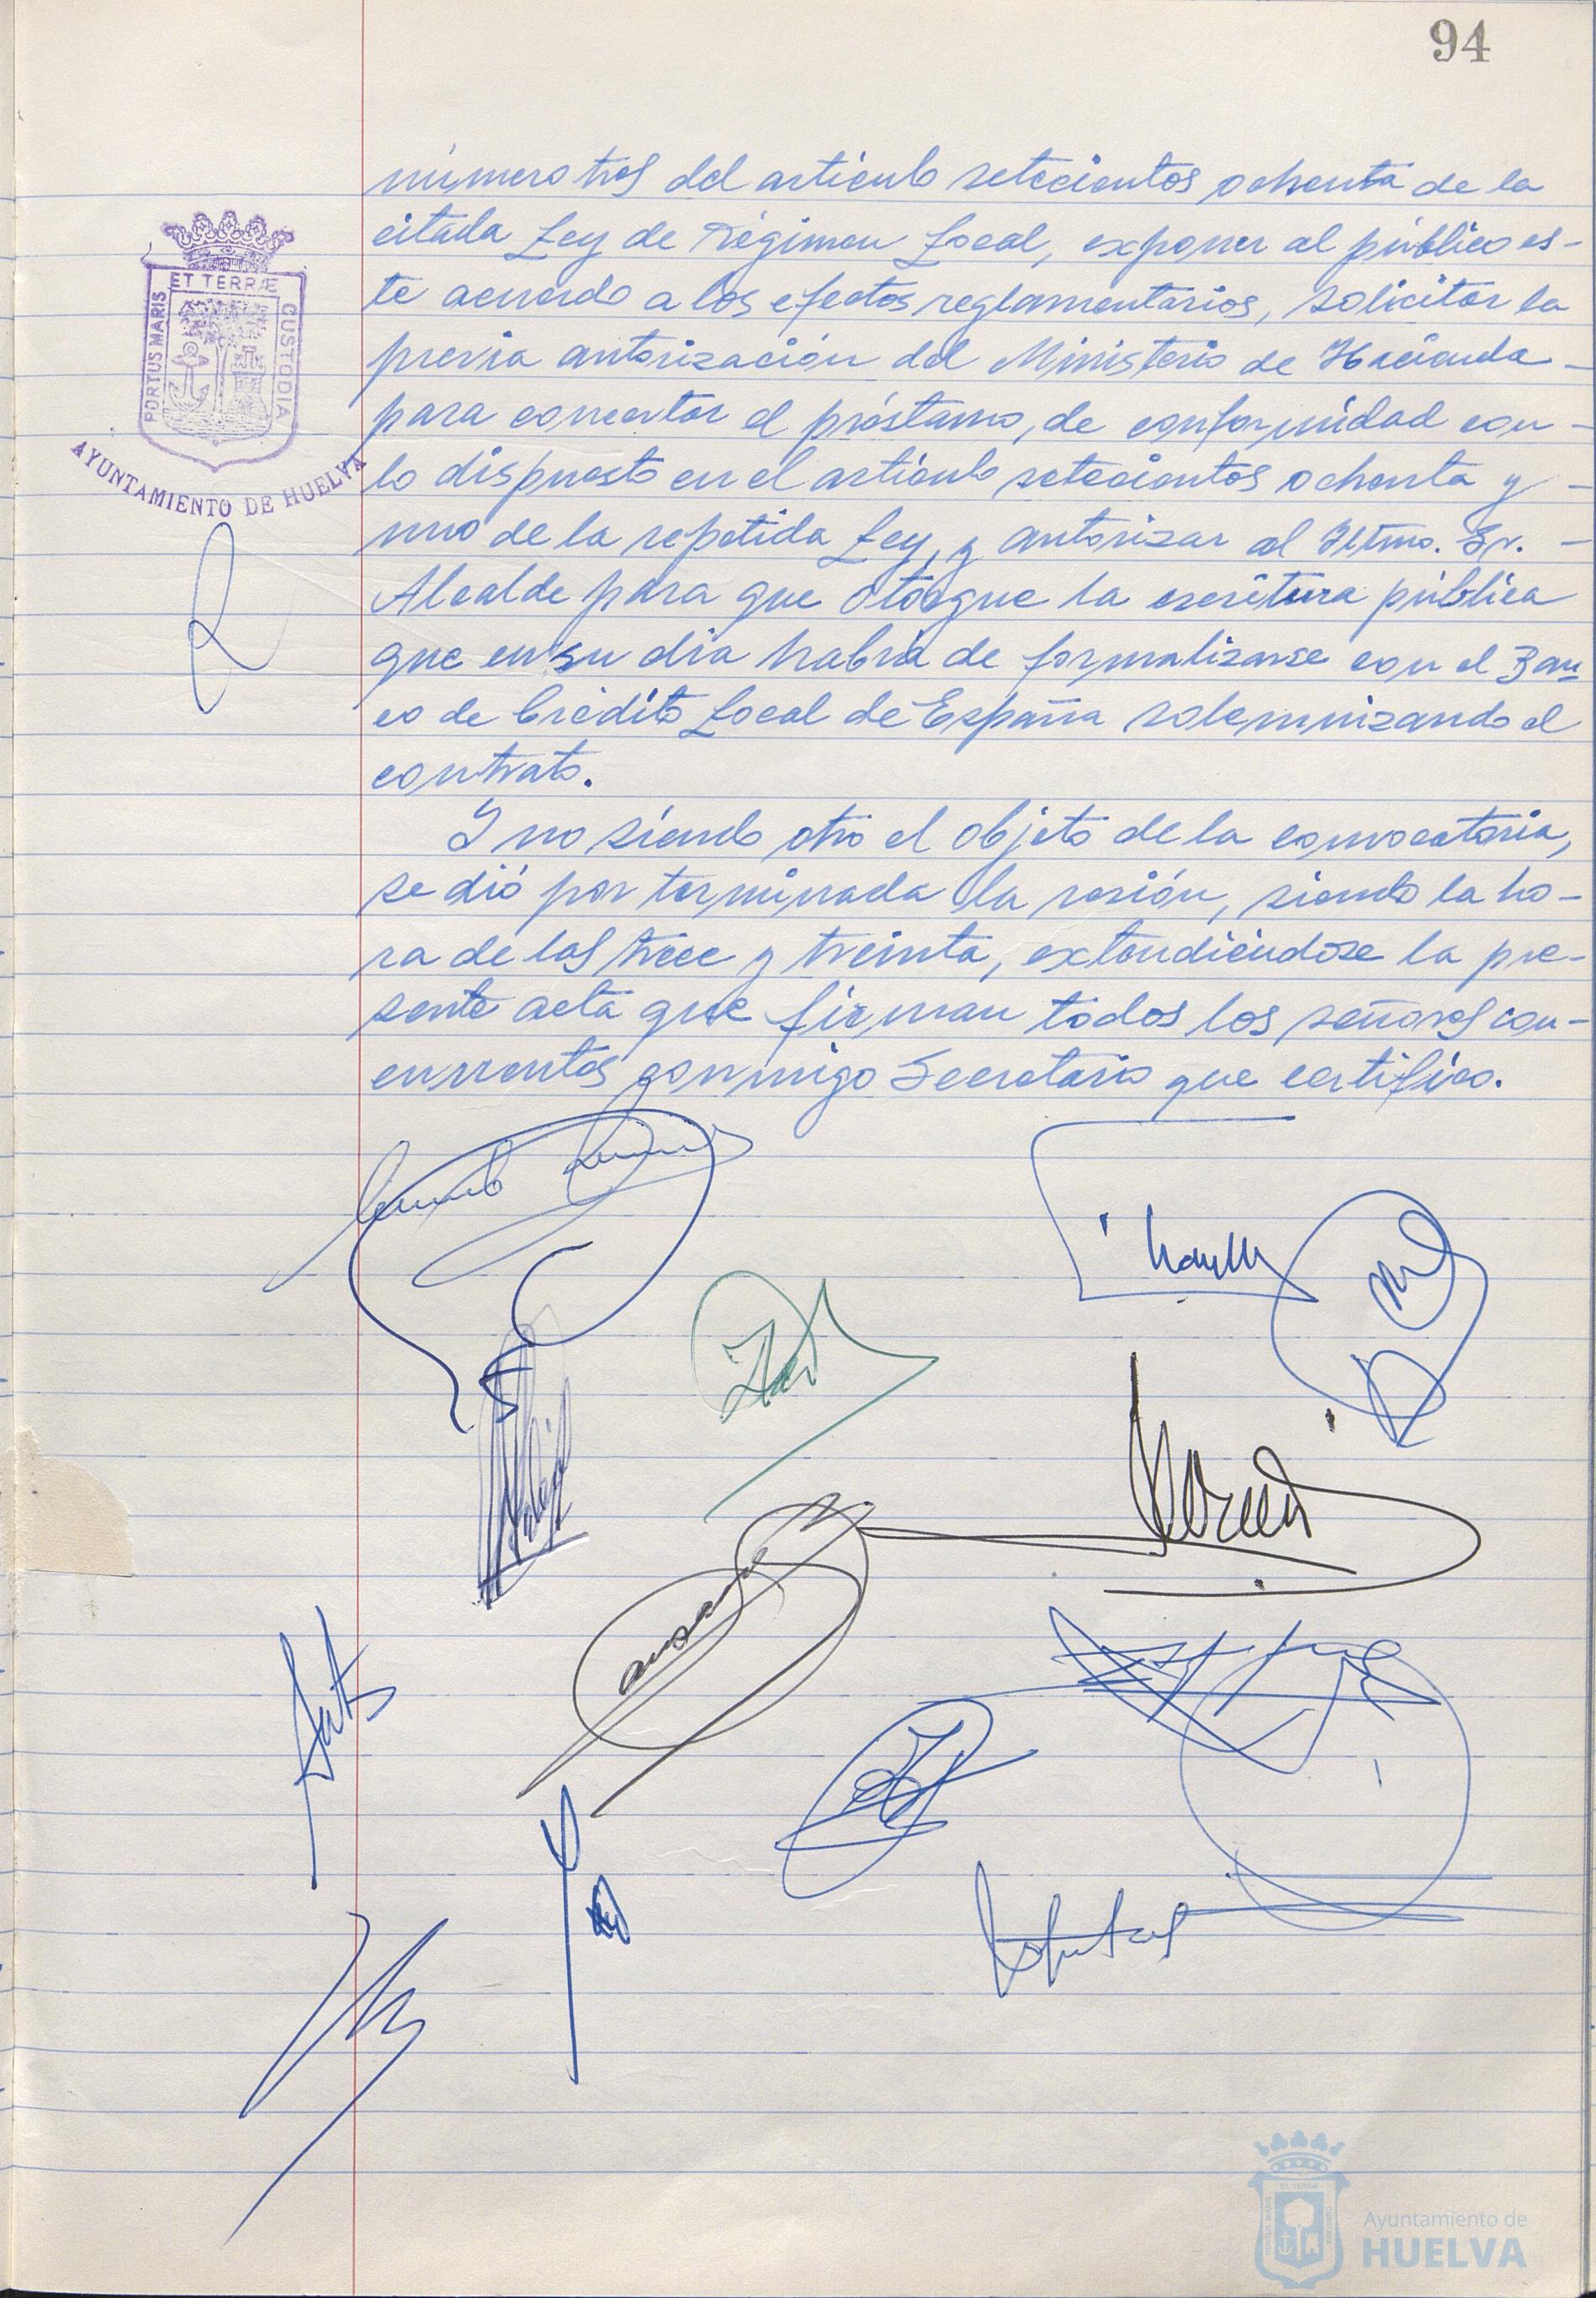 94
número tres del artículo setecientos ochenta de la
citada Ley de Régimen Local, exponer al público es-
te acuerdo a los efectos reglamentarios, solicitar la
previa autorización del Ministerio de Hacienda -
para concertar el préstamo, de conformidad con -
lo dispuesto en el artículo setecientos ochenta y -
uno de la repetida Ley, y autorizar al Iltmo. Sr. -
Alcalde para que otorgue la escritura pública
que en su día habrá de formalizarse con el Ban
co de Crédito Local de España solemnizando el
contrato.
Y no siendo otro el objeto de la convocatoria,
se dió por terminada la sesión, siendo la ho-
ra de las trece y treinta, extendiéndose la pre-
sente acta que firman todos los señores con-
currentes conmigo Secretario que certifico.
PORTUS MARIS ET TERRÆ CUSTODIA
AYUNTAMIENTO DE HUELVA
Ayuntamiento de
HUELVA